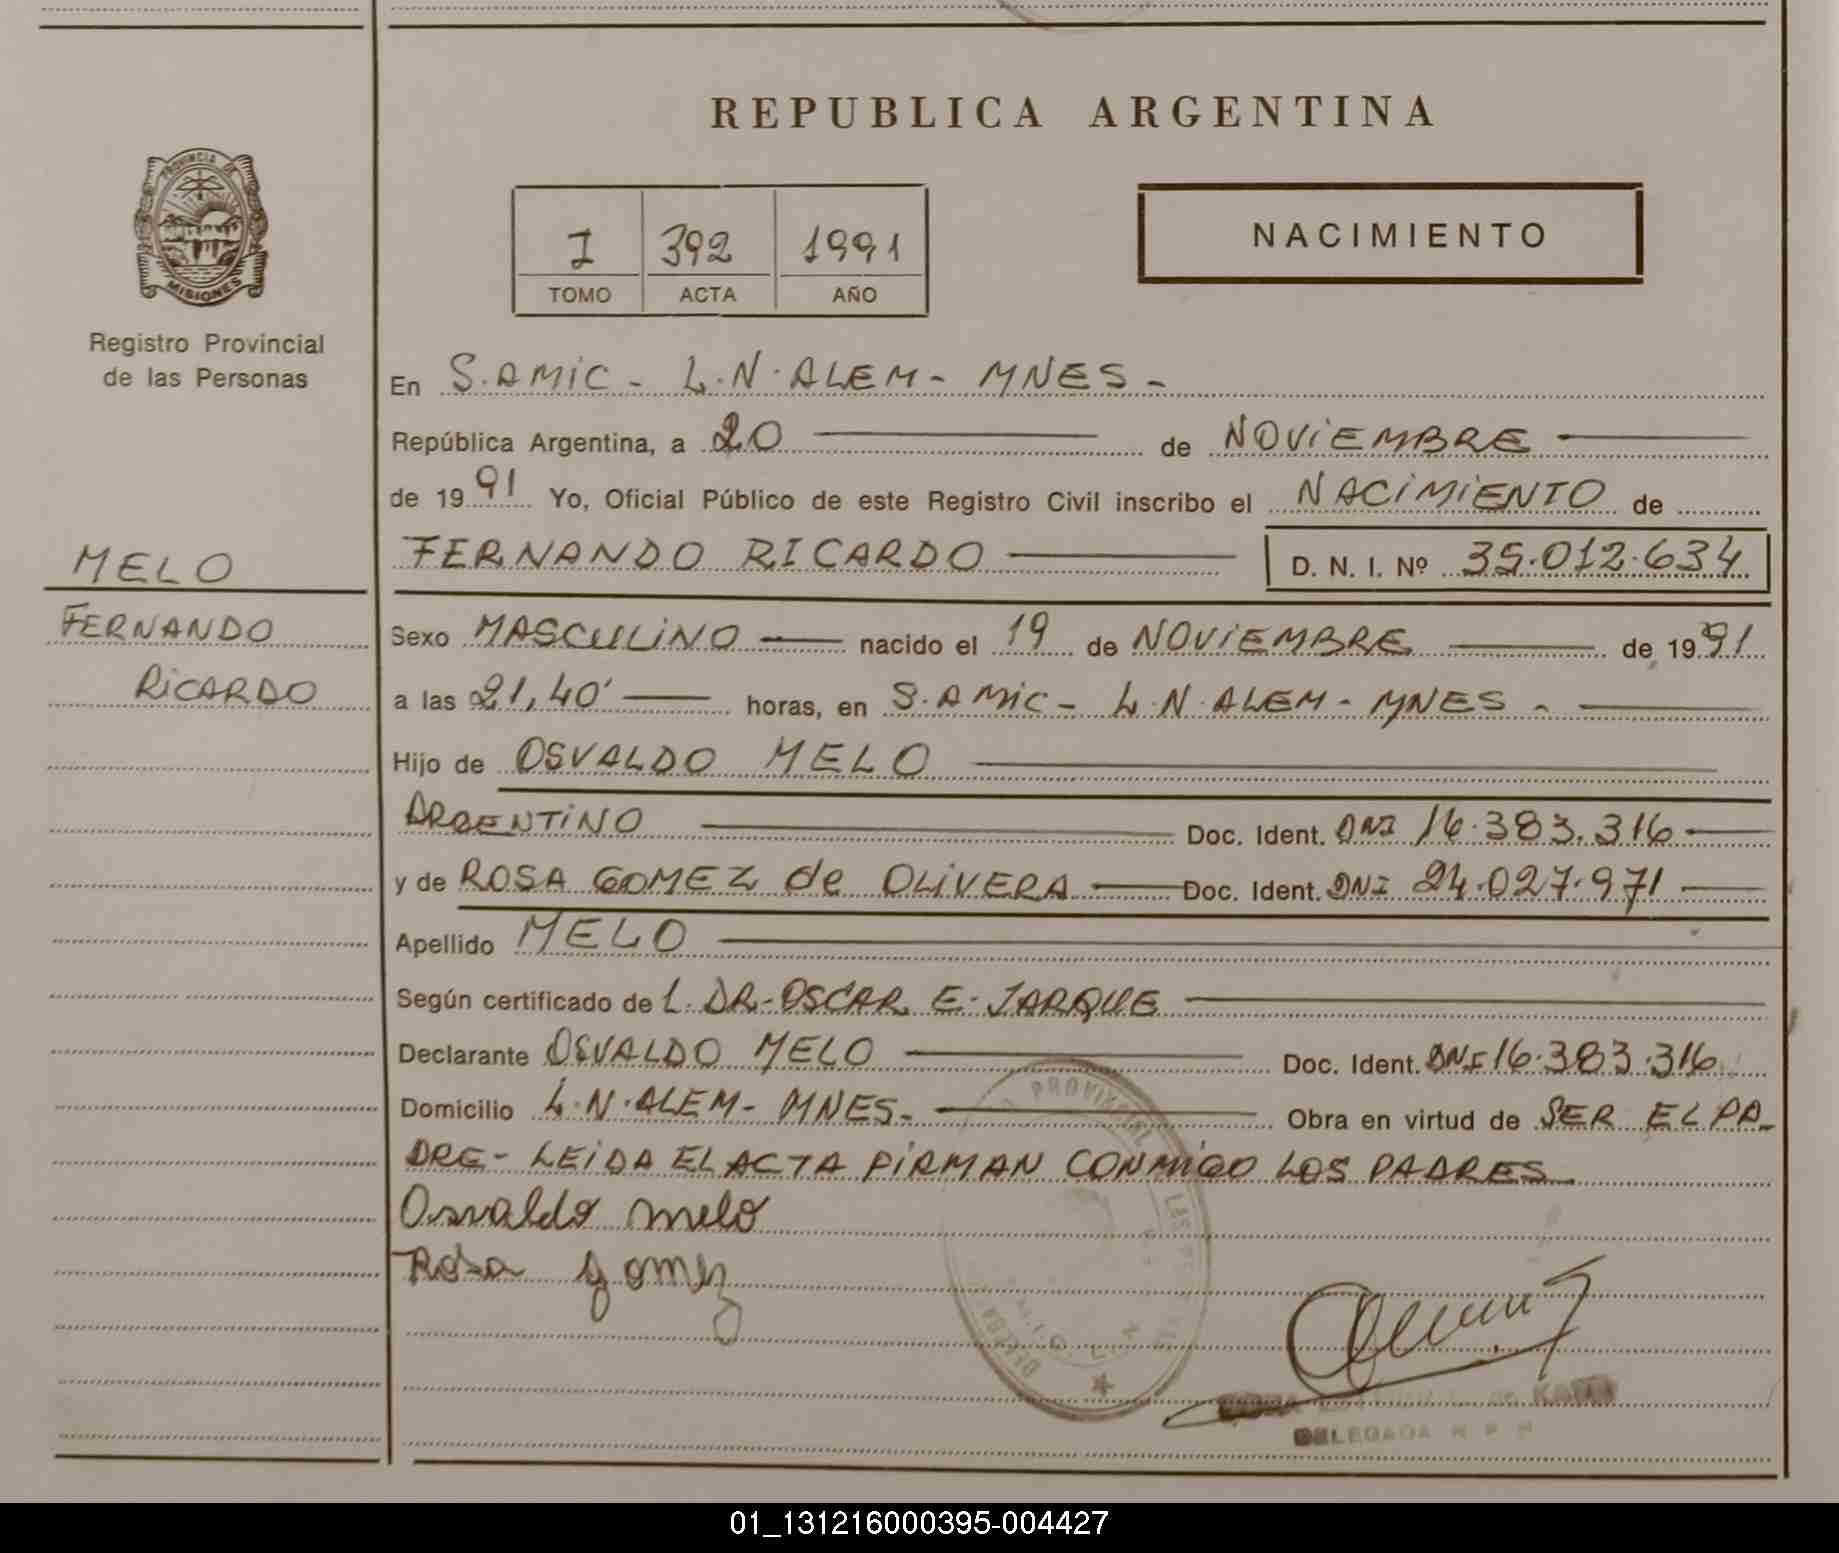 REPUBLICA ARGENTINA
PROVINCIA DE
MISIONES
Registro Provincial
de las Personas
I 392 1991
TOMO ACTA AÑO
NACIMIENTO
En S.AMIC - L.N.ALEM - MNES -
República Argentina, a 20 de NOVIEMBRE
de 1991 Yo, Oficial Público de este Registro Civil inscribo el NACIMIENTO de
MELO
FERNANDO RICARDO D. N. I. Nº 35.012.634
FERNANDO
RICARDO
Sexo MASCULINO nacido el 19 de NOVIEMBRE de 1991
a las 21,40' horas, en S.AMIC - L.N.ALEM - MNES -
Hijo de OSVALDO MELO
ARGENTINO Doc. Ident. DNI 16.383.316
y de ROSA GOMEZ de OLIVERA Doc. Ident. DNI 24.027.971
Apellido MELO
Según certificado de L. DR. OSCAR E. JARQUE
Declarante OSVALDO MELO Doc. Ident. DNI 16.383.316
Domicilio L.N.ALEM - MNES - Obra en virtud de SER EL PA-
DRE - LEIDA EL ACTA FIRMAN CONMIGO LOS PADRES
Osvaldo melo
Rosa gomez
PROVINCIAL
DELEGADA R P P
01_131216000395-004427